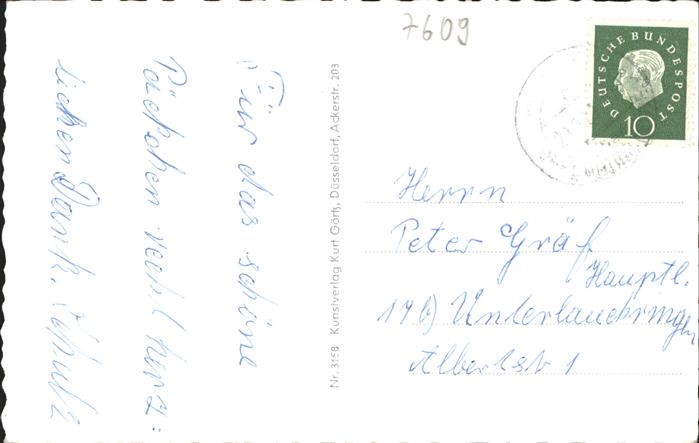 7609
DEUTSCHE BUNDESPOST
10
Für das schöne
Päckchen recht herz=
lichen Dank.
Nr. 3158 Kunstverlag Kurt Görtz, Düsseldorf, Ackerstr. 203
Herrn
Peter Gräf
Hauptl.
Unterlauchringen
Albertstr 1